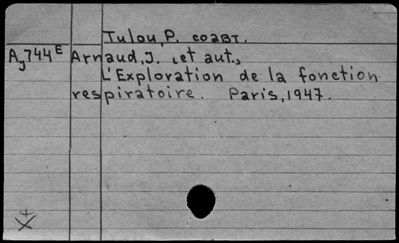 Tulou, P. соавт.
Aj744E Arnaud, J. et aut.,
L'Exploration de la fonction
respiratoire. Paris, 1947.